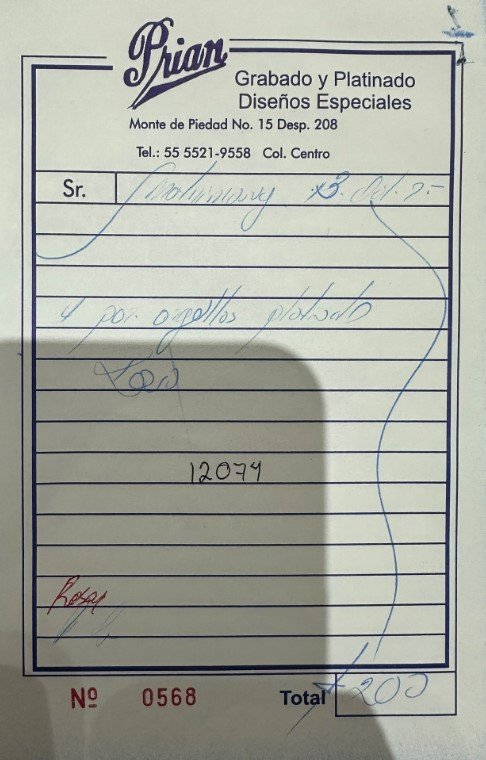 Prian
Grabado y Platinado
Diseños Especiales
Monte de Piedad No. 15 Desp. 208
Tel.: 55 5521-9558 Col. Centro
Sr.
4 par platinado
12074
Nº 0568 Total 200